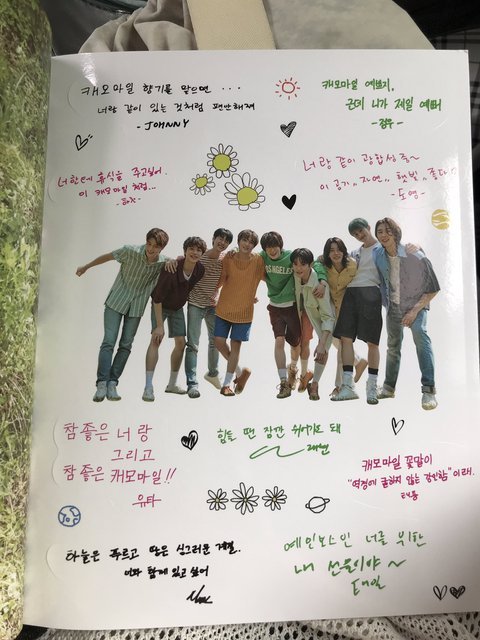 캐모마일 향기를 맡으면 ...
너랑 같이 있는 것처럼 편안해져
- JOHNNY -
캐모마일 예쁘지,
근데 니가 제일 예뻐
- 정우 -
너한테 휴식을 주고싶어.
이 캐모마일 처럼...
너랑 같이 광합성 중~
이 공기,, 자연,, 햇빛,, 좋다!
- 도영 -
LOS ANGELES
참 좋은 너랑
그리고
참 좋은 캐모마일!!
유타
힘들 땐 잠깐 쉬어가도 돼
캐모마일 꽃말이
"역경에 굴하지 않는 강인함" 이래.
태용
하늘은 푸르고 땅은 싱그러운 계절..
너와 함께 있고 싶어
예일보스인 너를 위한
내 선물이야~
태일